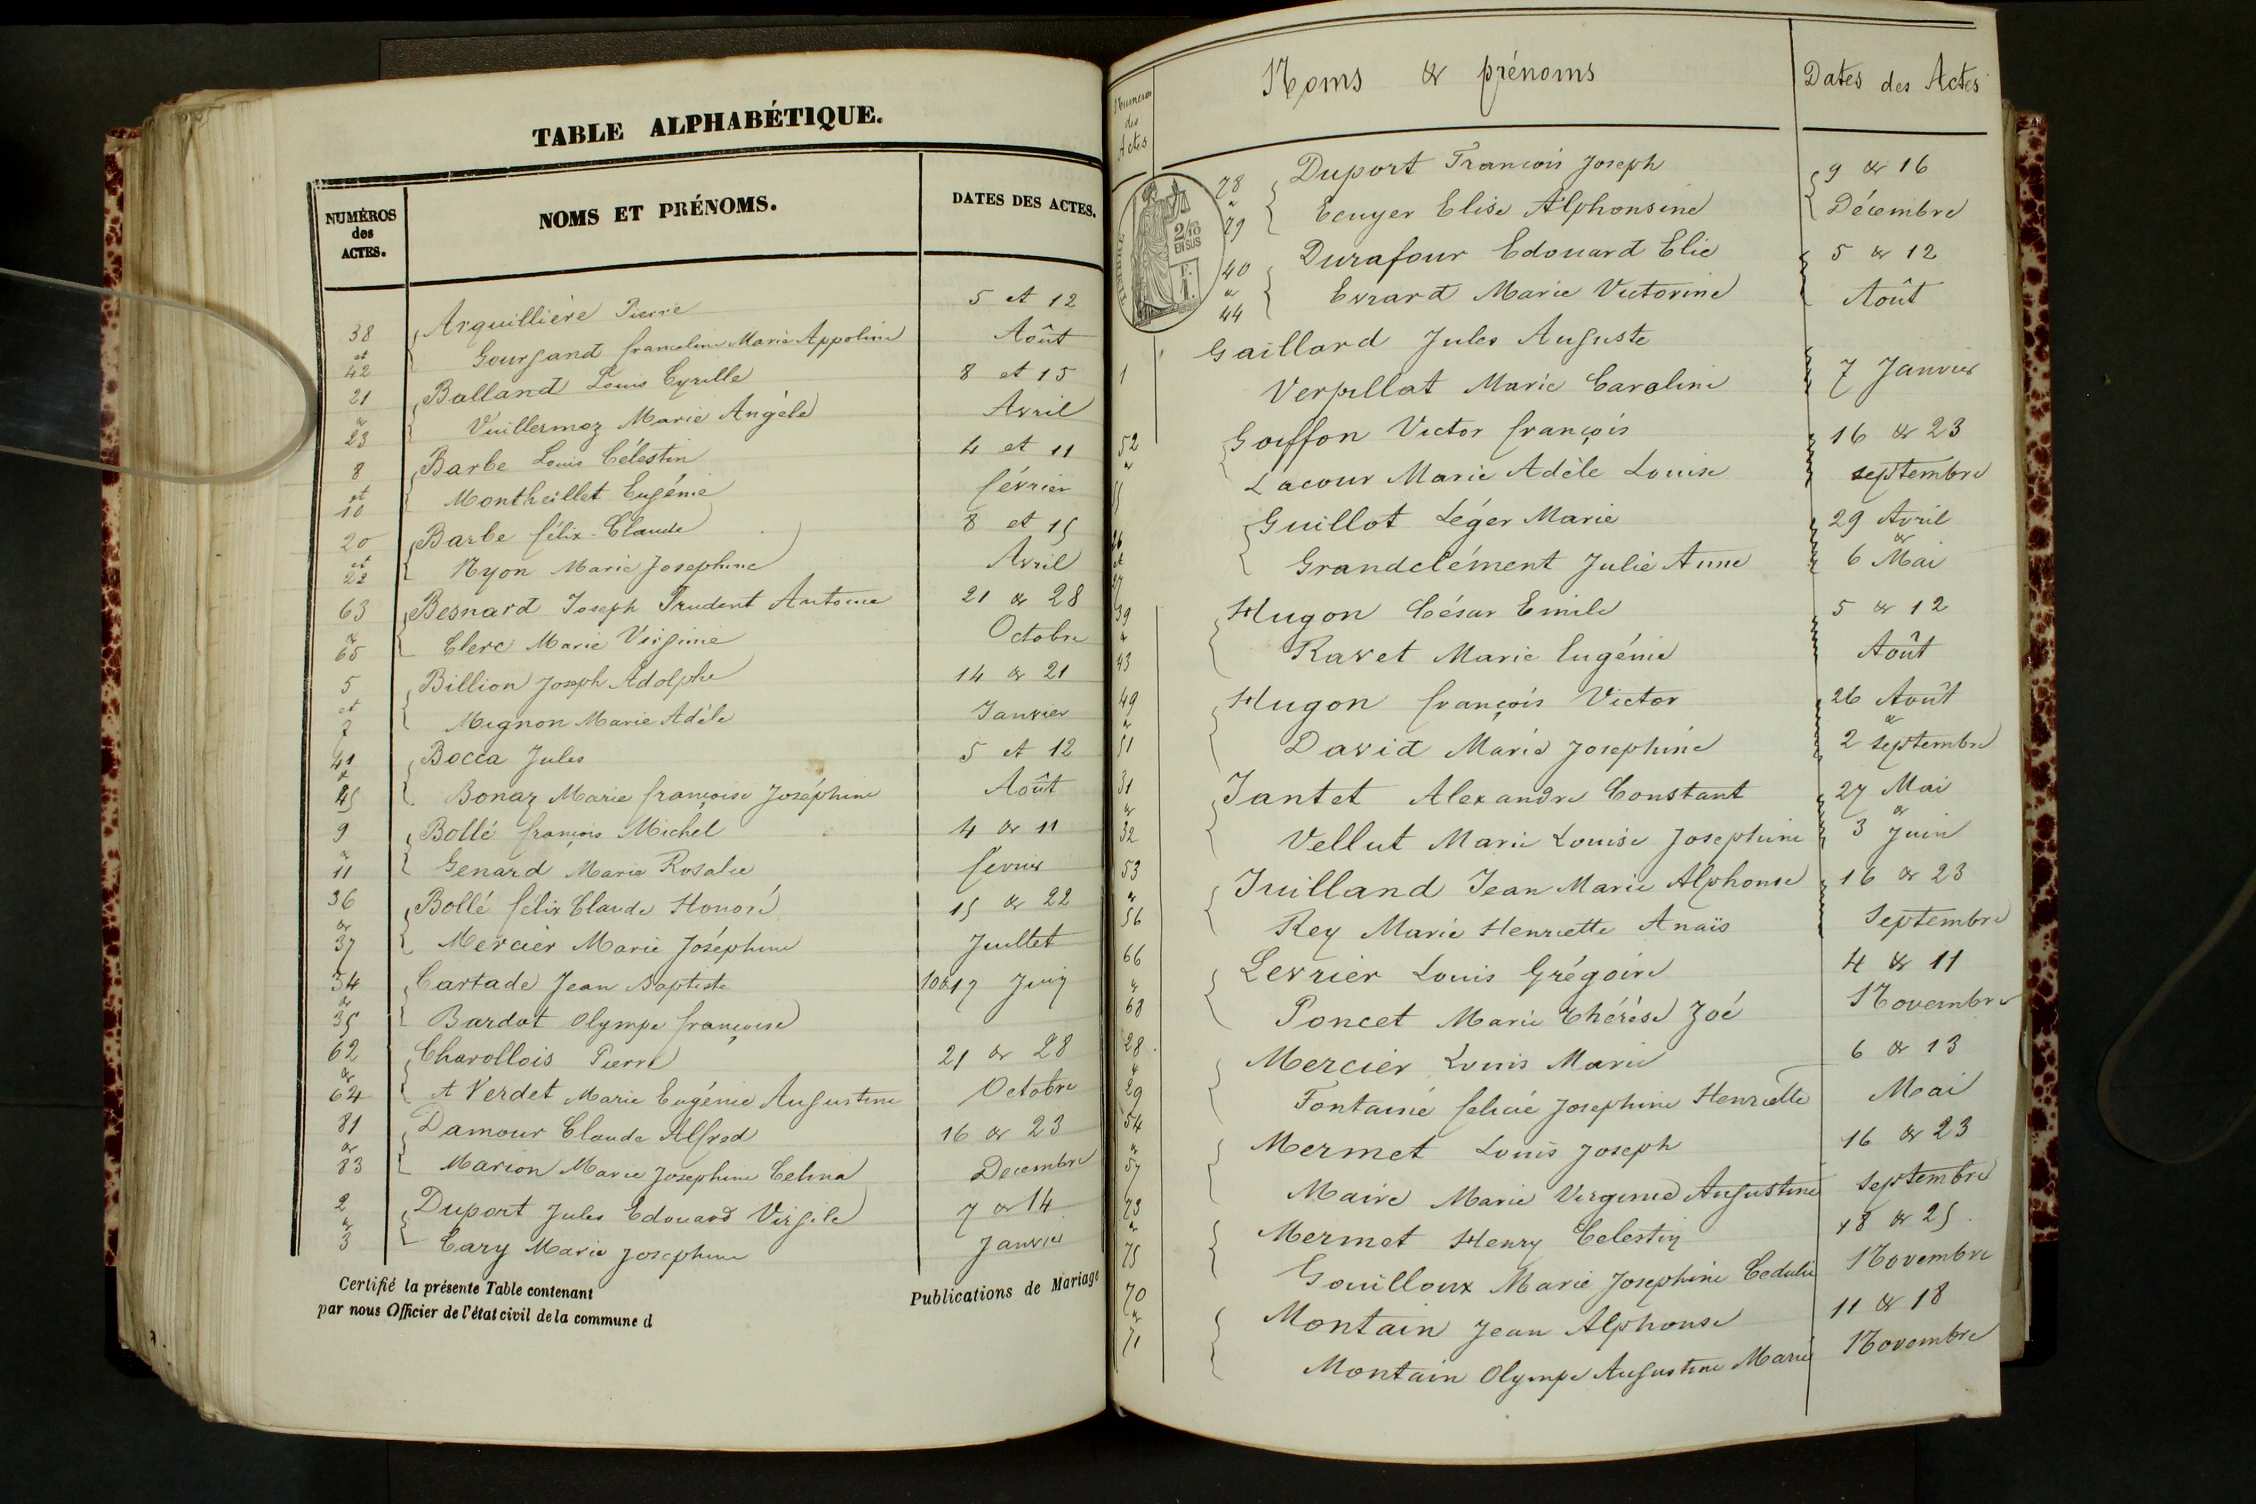 TABLE ALPHABÉTIQUE.
NUMÉROS
des
ACTES.
NOMS ET PRÉNOMS.
DATES DES ACTES.
38 Arquillière Pierre 5 et 12
et
42 Goursand francoline Marie Appoline Août
21 Balland Louis Cyrille 8 et 15
&
23 Vuillermoz Marie Angèle Avril
8 Barbe Louis Célestin 4 et 11
et
10 Montheillet Eugénie février
20 Barbe félix Claude 8 et 15
et
22 Nyon Marie Josephine Avril
63 Besnard Joseph Prudent Antoine 21 & 28
&
65 Clerc Marie Virginie Octobre
5 Billion Joseph Adolphe 14 & 21
et
7 Mignon Marie Adèle Janvier
41 Bocca Jules 5 et 12
&
45 Bonaz Marie françoise Joséphine Août
9 Bollé françois Michel 4 & 11
&
11 Genard Marie Rosalie fevrier
36 Bollé félix Claude Honoré 15 & 22
&
37 Mercier Marie Joséphine Juillet
34 Cartade Jean Baptiste 10 & 17 Juin
&
35 Bardot Olympe françoise
62 Charollois Pierre 21 & 28
&
64 et Verdet Marie Eugénie Augustine Octobre
81 Damour Claude Alfred 16 & 23
&
83 Marion Marie Josephine Celina Decembre
2 Duport Jules Edouard Virgile 7 & 14
&
3 Cary Marie Josephine Janvier
Certifié la présente Table contenant Publications de Mariage
par nous Officier de l'état civil de la commune d
Numeros
des
Actes
Noms & prénoms
Dates des Actes
TIMBRE
2/10
EN SUS
78 Duport François Joseph 9 & 16
&
79 Ecuyer Elise Alphonsine Décembre
40 Durafour Edouard Elie 5 & 12
&
44 Evrard Marie Victorine Août
Gaillard Jules Auguste
1 Verpillat Marie Caroline 7 Janvier
52 Goiffon Victor françois 16 & 23
&
55 Lacour Marie Adèle Louise septembre
26 Guillot Léger Marie 29 Avril
et &
27 Grandclément Julie Anne 6 Mai
39 Hugon César Emile 5 & 12
&
43 Ravet Marie Eugénie Août
49 Hugon françois Victor 26 Août
& &
51 David Maria Josephine 2 septembre
31 Jantet Alexandre Constant 27 Mai
& &
32 Vellut Marie Louise Josephine 3 Juin
53 Juilland Jean Marie Alphonse 16 & 23
&
56 Rey Marie Henriette Anaïs Septembre
66 Levrier Louis Grégoire 4 & 11
&
68 Poncet Marie Thérèse Zoé Novembre
28 Mercier Louis Marie 6 & 13
&
29 Fontaine felicie Josephine Henriette Mai
54 Mermet Louis Joseph 16 & 23
&
57 Maire Marie Virginie Augustine septembre
73 Mermet Henry Celestin 18 & 25
&
75 Gouilloux Marie Josephine Cedulie Novembre
70 Montain Jean Alphonse 11 & 18
&
71 Montain Olympe Augustine Marie Novembre